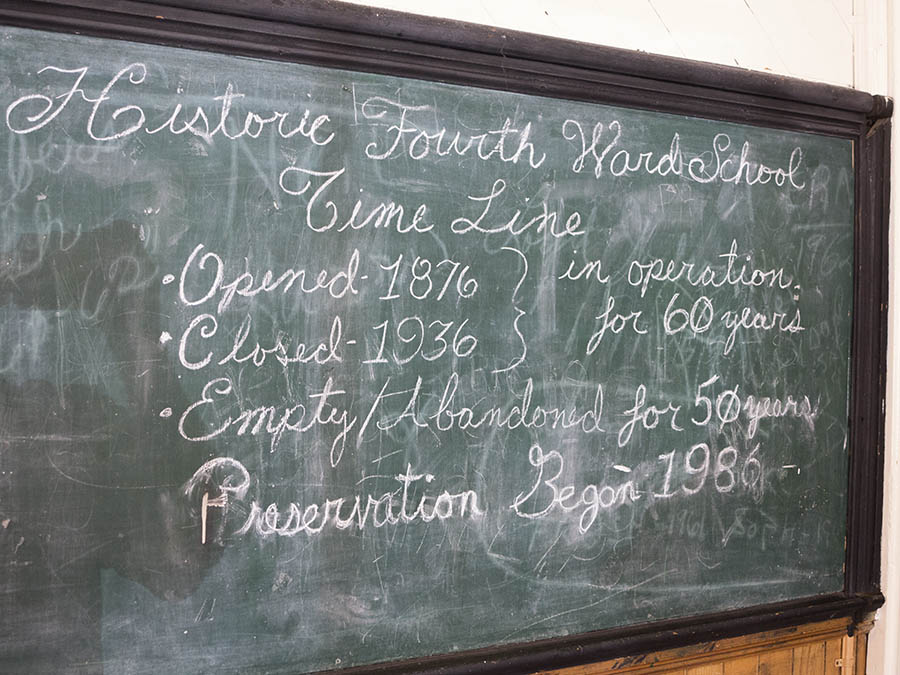 Historic Fourth Ward School
Time Line
• Opened - 1876 } in operation
• Closed - 1936 } for 60 years
• Empty/Abandoned for 50 years
Preservation Began 1986 -